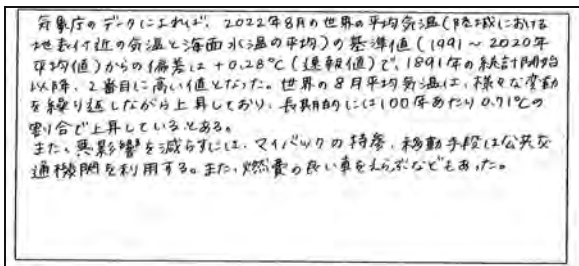 気象庁のデータによれば、2022年8月の世界の平均気温(陸域における
地表付近の気温と海面水温の平均)の基準値(1991～2020年
平均値)からの偏差は+0.28℃(速報値)で、1891年の統計開始
以降、2番目に高い値となった。世界の8月平均気温は、様々な変動
を繰り返しながら上昇しており、長期的には100年あたり0.71℃の
割合で上昇しているとある。
また、悪影響を減らすには、マイバックの持参、移動手段は公共交
通機関を利用する。また、燃費の良い車をえらぶなどもあった。